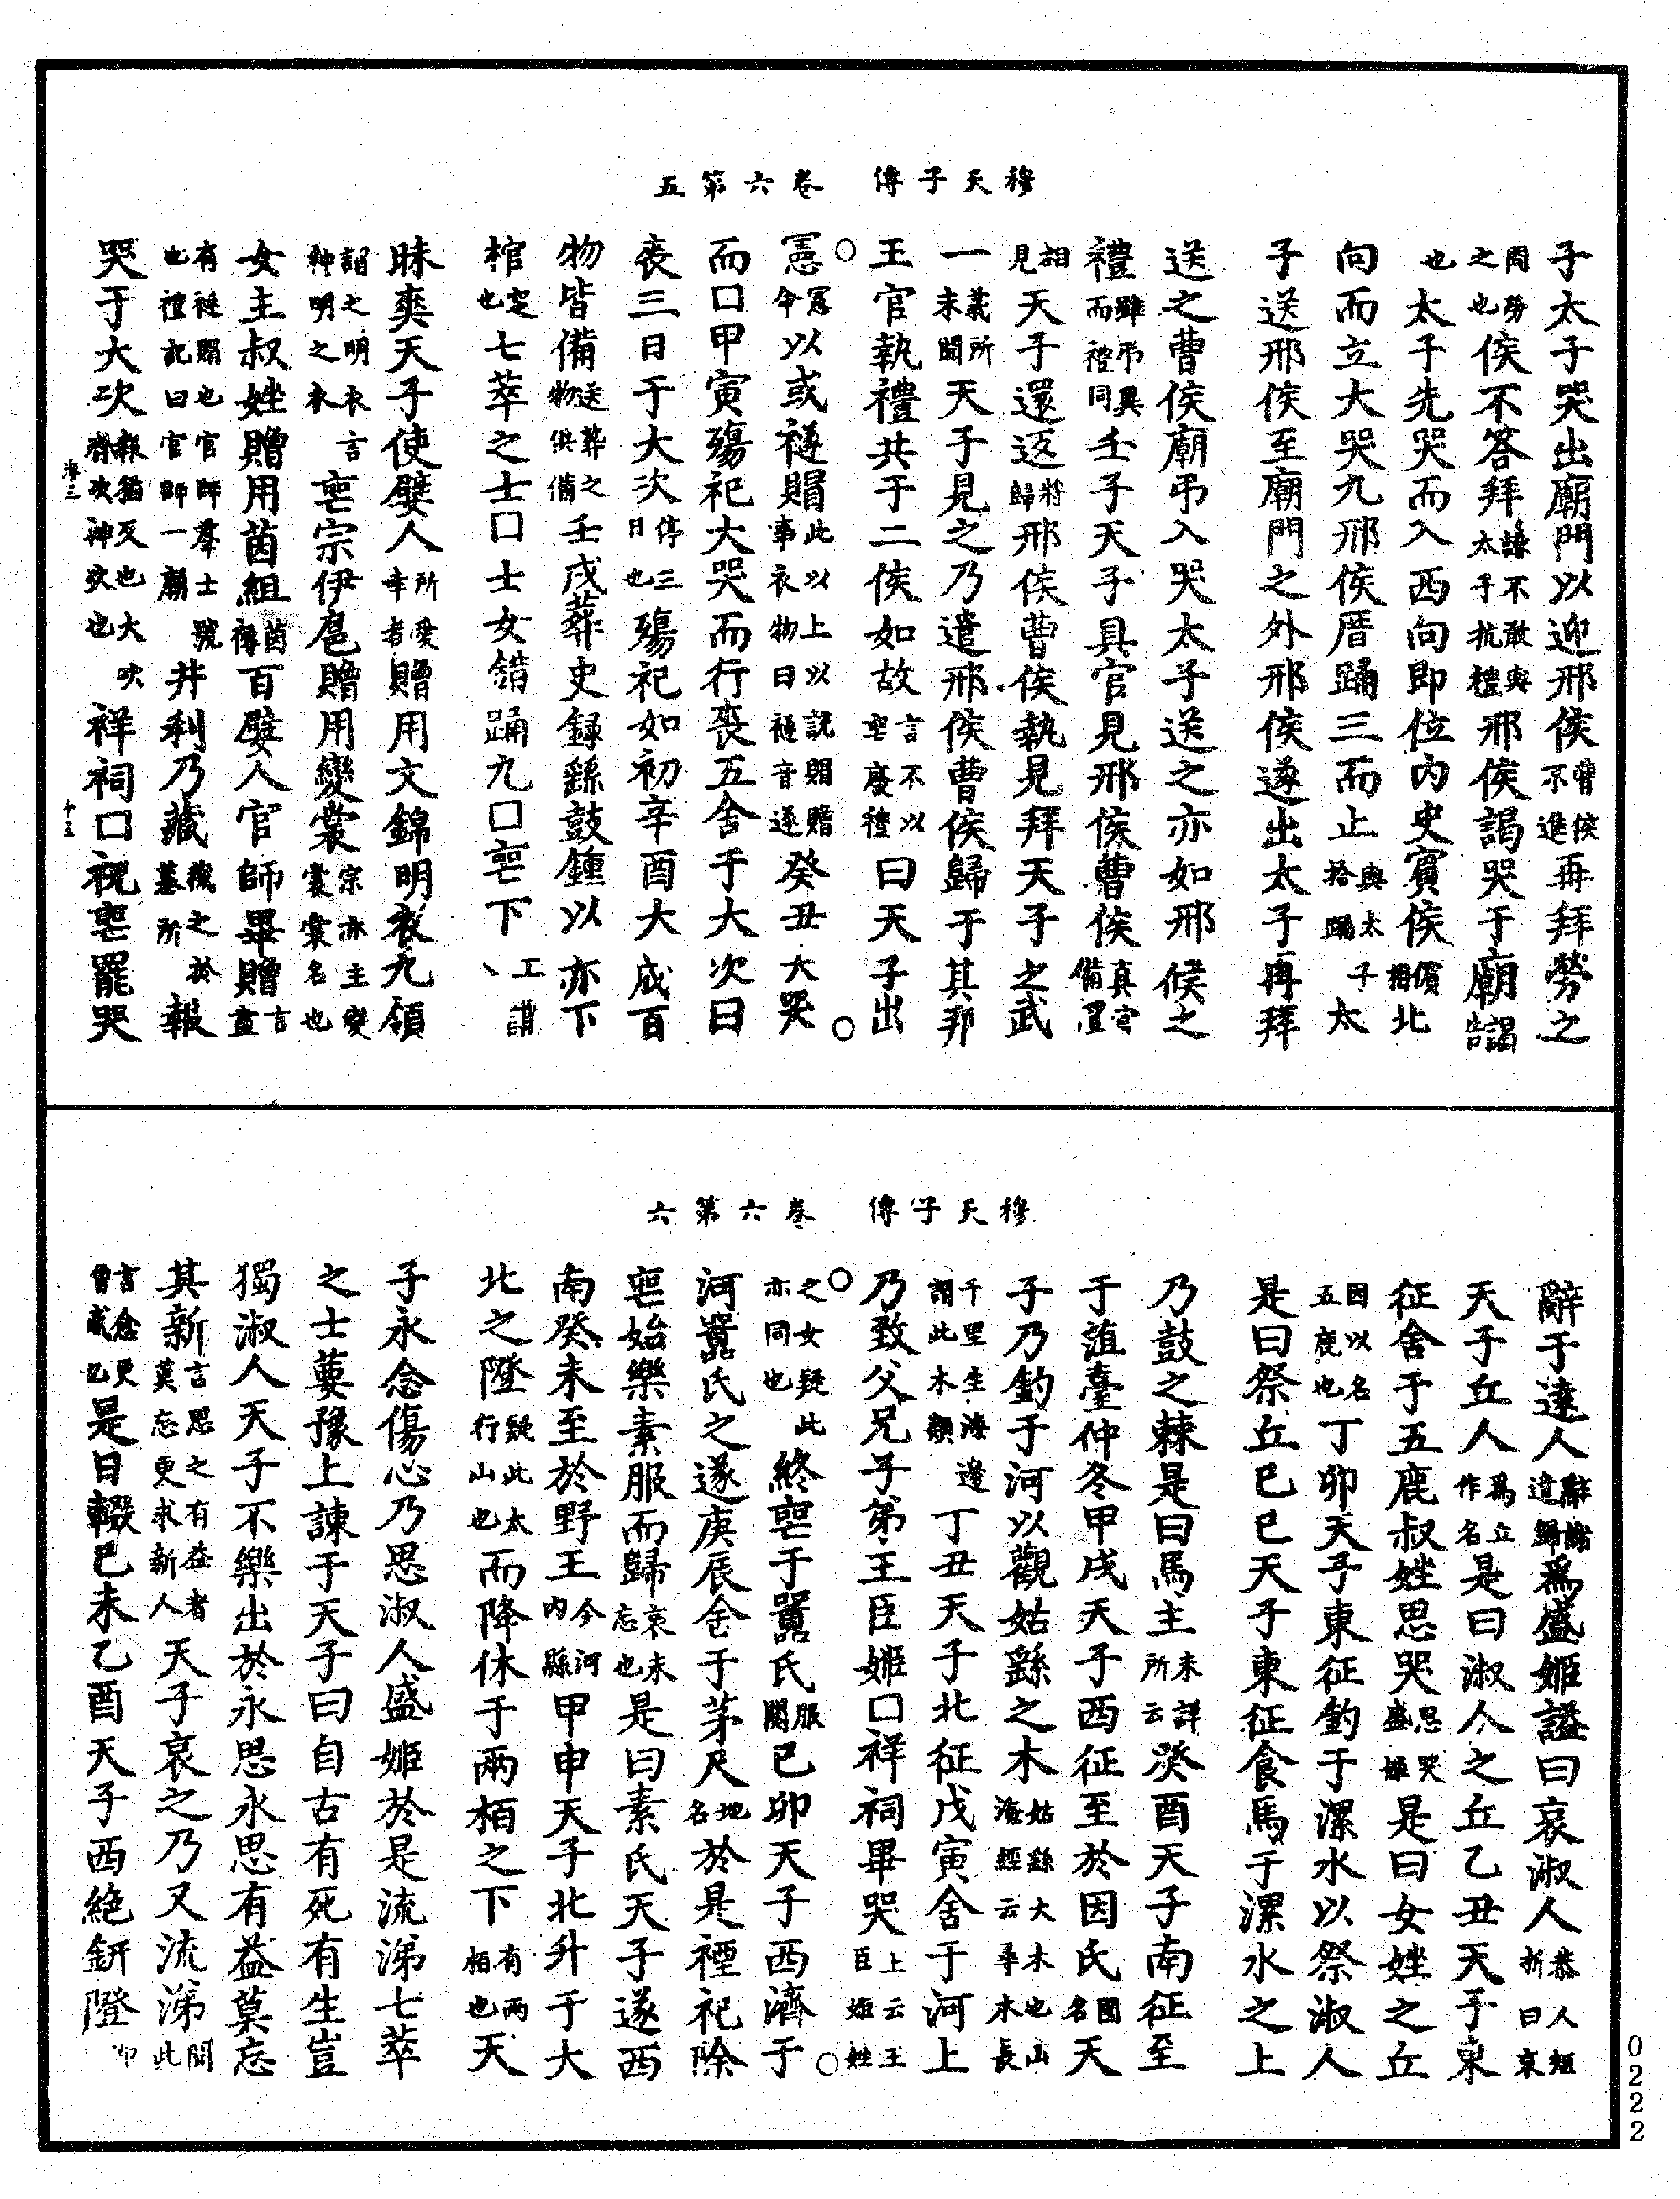 穆天子傳　卷六第五
子太子哭出廟門以迎邢侯曹侯不進再拜勞之
問勞之也侯不答拜謙不敢與太子抗禮邢侯謁哭于廟謁告
也太子先哭而入西向即位內史賓侯儐相北
向而立大哭九邢侯厝踊三而止與太子拾踊太
子送邢侯至廟門之外邢侯遂出太子再拜
送之曹侯廟弔入哭太子送之亦如邢候之
禮雖弔異而禮同壬子天子具官見邢侯曹侯真官備置
相見天子還返將歸邢侯曹侯執見拜天子之武
一義所未聞天子見之乃遣邢侯曹侯歸于其邦
王官執禮共于二侯如故言不以喪廢禮曰天子出
憲憲命以或襚賵此以上以說賵贈事衣物曰襚音遂癸丑大哭
而口甲寅殤祀大哭而行喪五舍于大次曰
喪三日于大次停三日也殤祀如初辛酉大成百
物皆備送葬之物俱備壬戌葬史錄繇鼓鍾以亦下
棺窆也七萃之士口士女錯踊九口喪下工謂
昧爽天子使嬖人所愛幸者贈用文錦明衣九領
謂之明衣言神明之衣喪宗伊扈贈用變裳宗亦主變裳裳名也
女主叔姓贈用茵組茵褥百嬖人官師畢贈言盡
有襚賵也官師羣士號也禮記曰官師一廟井利乃藏藏之於墓所報
哭于大次報猶反也大次有次神次也祥祠口祝喪罷哭
海三　十三
穆天子傳　卷六第六
辭于遠人辭謝遣歸為盛姬謚曰哀淑人恭人短折曰哀
天子丘人為立作名是曰淑人之丘乙丑天子東
征舍于五鹿叔姓思哭思哭盛姬是曰女姓之丘
因以名五鹿也丁卯天子東征釣于漯水以祭淑人
是曰祭丘己巳天子東征食馬于漯水之上
乃鼓之棘是曰馬主未詳所云癸酉天子南征至
于菹臺仲冬甲戌天子西征至於因氏國名天
子乃釣于河以觀姑繇之木姑繇大木也山海經云尋木長
千里生海邊謂此木類丁丑天子北征戊寅舍于河上
乃致父兄子弟王臣姬口祥祠畢哭上云王臣姬姓
之女疑此亦同也終喪于嚻氏服闋己卯天子西濟于
河嚻氏之遂庚辰舍于茅尺地名於是禋祀除
喪始樂素服而歸哀未忘也是曰素氏天子遂西
南癸未至於野王今河內縣甲申天子北升于大
北之隥疑此太行山也而降休于兩栢之下有兩栢也天
子永念傷心乃思淑人盛姬於是流涕七萃
之士葽豫上諫于天子曰自古有死有生豈
獨淑人天子不樂出於永思永思有益莫忘
其新言思之有益者莫忘更求新人天子哀之乃又流涕聞此
言愈更曾感也是日輟己未乙酉天子西絕鈃隥
0222